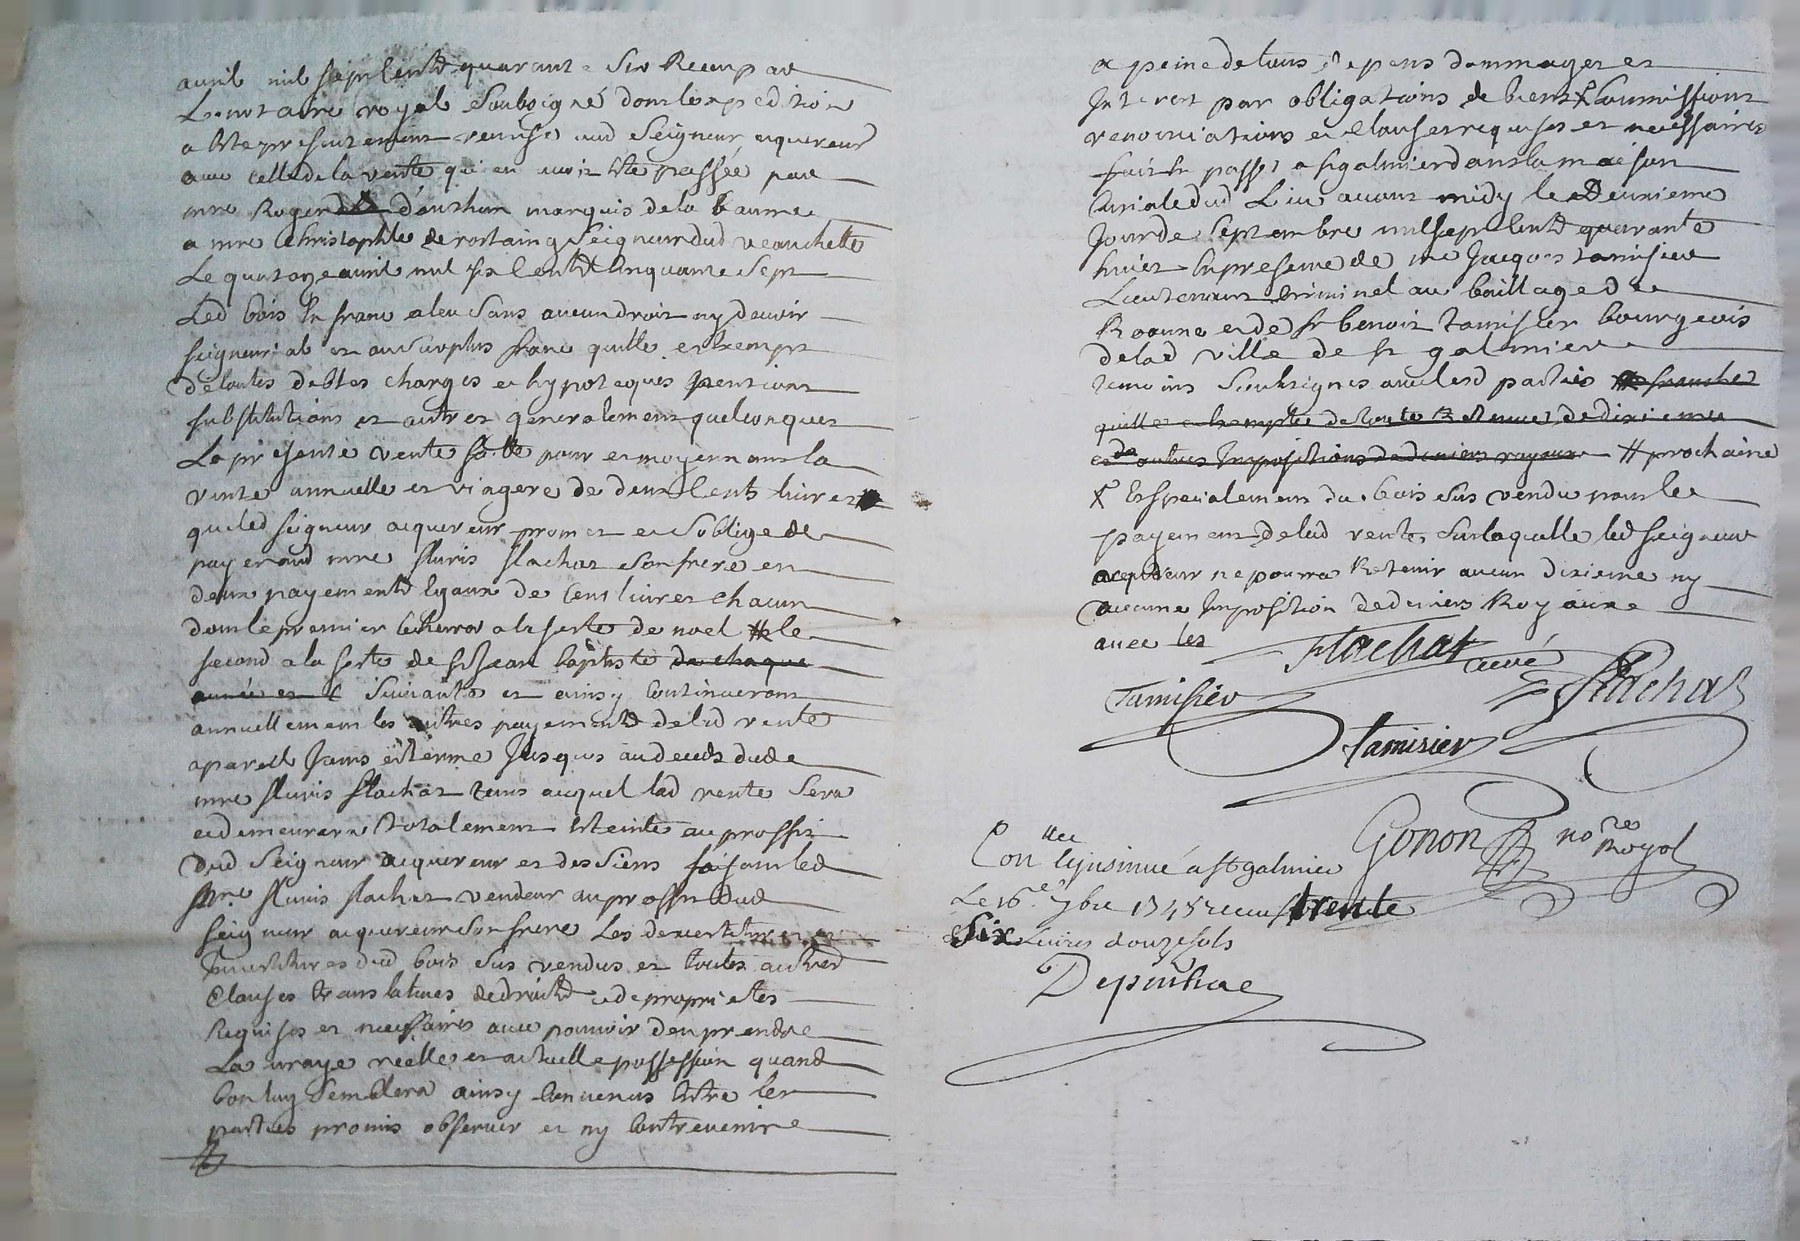 avril mil sept cents quarante Six Receu par
Le notaire royal Soubsigné dont lexpedition
a été presentement remise aud Seigneur aquereur
avec celle de la vente qui en avoit été passée par
mre Roger d'aushun marquis de la baume
a mre Christophle de rostaing Seigneur dud veauchette
Le quatorze avril mil six cents Cinquante Sept
Led bois En franc aleu Sans aucun droit ny devoir
seigneurial et au Surplus franc quitte et Exempt
de toutes debtes charges et hypoteques pentions
substitutions et autres generalement quelconques
La presente vente faitte pour et moyennant la
rente annuelle et viagere de deux Cents livres
que led seigneur aquereur promet et S'oblige de
payer aud mre fluris flachat Son frere en
deux payements Egaux de Cent livres chacun
dont le premier Echerra a la feste de noel # le
second a la feste de St Jean baptiste de chaque
année et Suivante et ainsy Continueront
annuellement les autres payements de lad rente
a pareil Jours et terme Jusques au deceds dud
mre fluris flachat tems auquel lad rente Sera
et demeurera totalement Eteinte au proffit
dud Seigneur aquereur et des Siens faisant led
mre fluris flachat vendeur au proffit dud
Seigneur aquereur Son frere Les devestitures et
Investitures dud bois Sus vendus et toutes autres
Clauses translatives de droits et de proprietes
Requises et necessaires avec pouvoir d'en prendre
La vraye reelle et actuelle possession quand
bon luy Semblera ainsy Convenus Entre les
parties promis observer et ny Contrevenir
a peine de tous depens dommages et
Interest par obligations de biens X Soumissions
renonciations et Clauses requises et necessaires
fait et passé a St galmier dans la maison
Curiale dud Lieu avant midy le Deuxieme
Jour de Septembre mil sept Cents quarante
huict En presence de me Jacques tamisier
Lieutenant Criminel au bailliage de
Roanne et de Sr benoit tamisier bourgeois
de lad ville de St galmier
temoins Soubsignes avec lesd parties franche
quitte et Exempte de toute Retenue de dixieme
et de autres Impositions de deniers royaux # prochaine
X Et Specialement du bois Sus vendu pour le
payement de lad rente Sur laquelle led Seigneur
aquereur ne pourra Retenir aucun dixieme ny
aucune Imposition de deniers Royaux
avec les
Flachat curé
Flachat
Tamisier
Tamisier
Gonon nore Royal
Conllé et insinué a St galmier
Le 16e 7bre 1748 receu trente
Six Livres douze sols